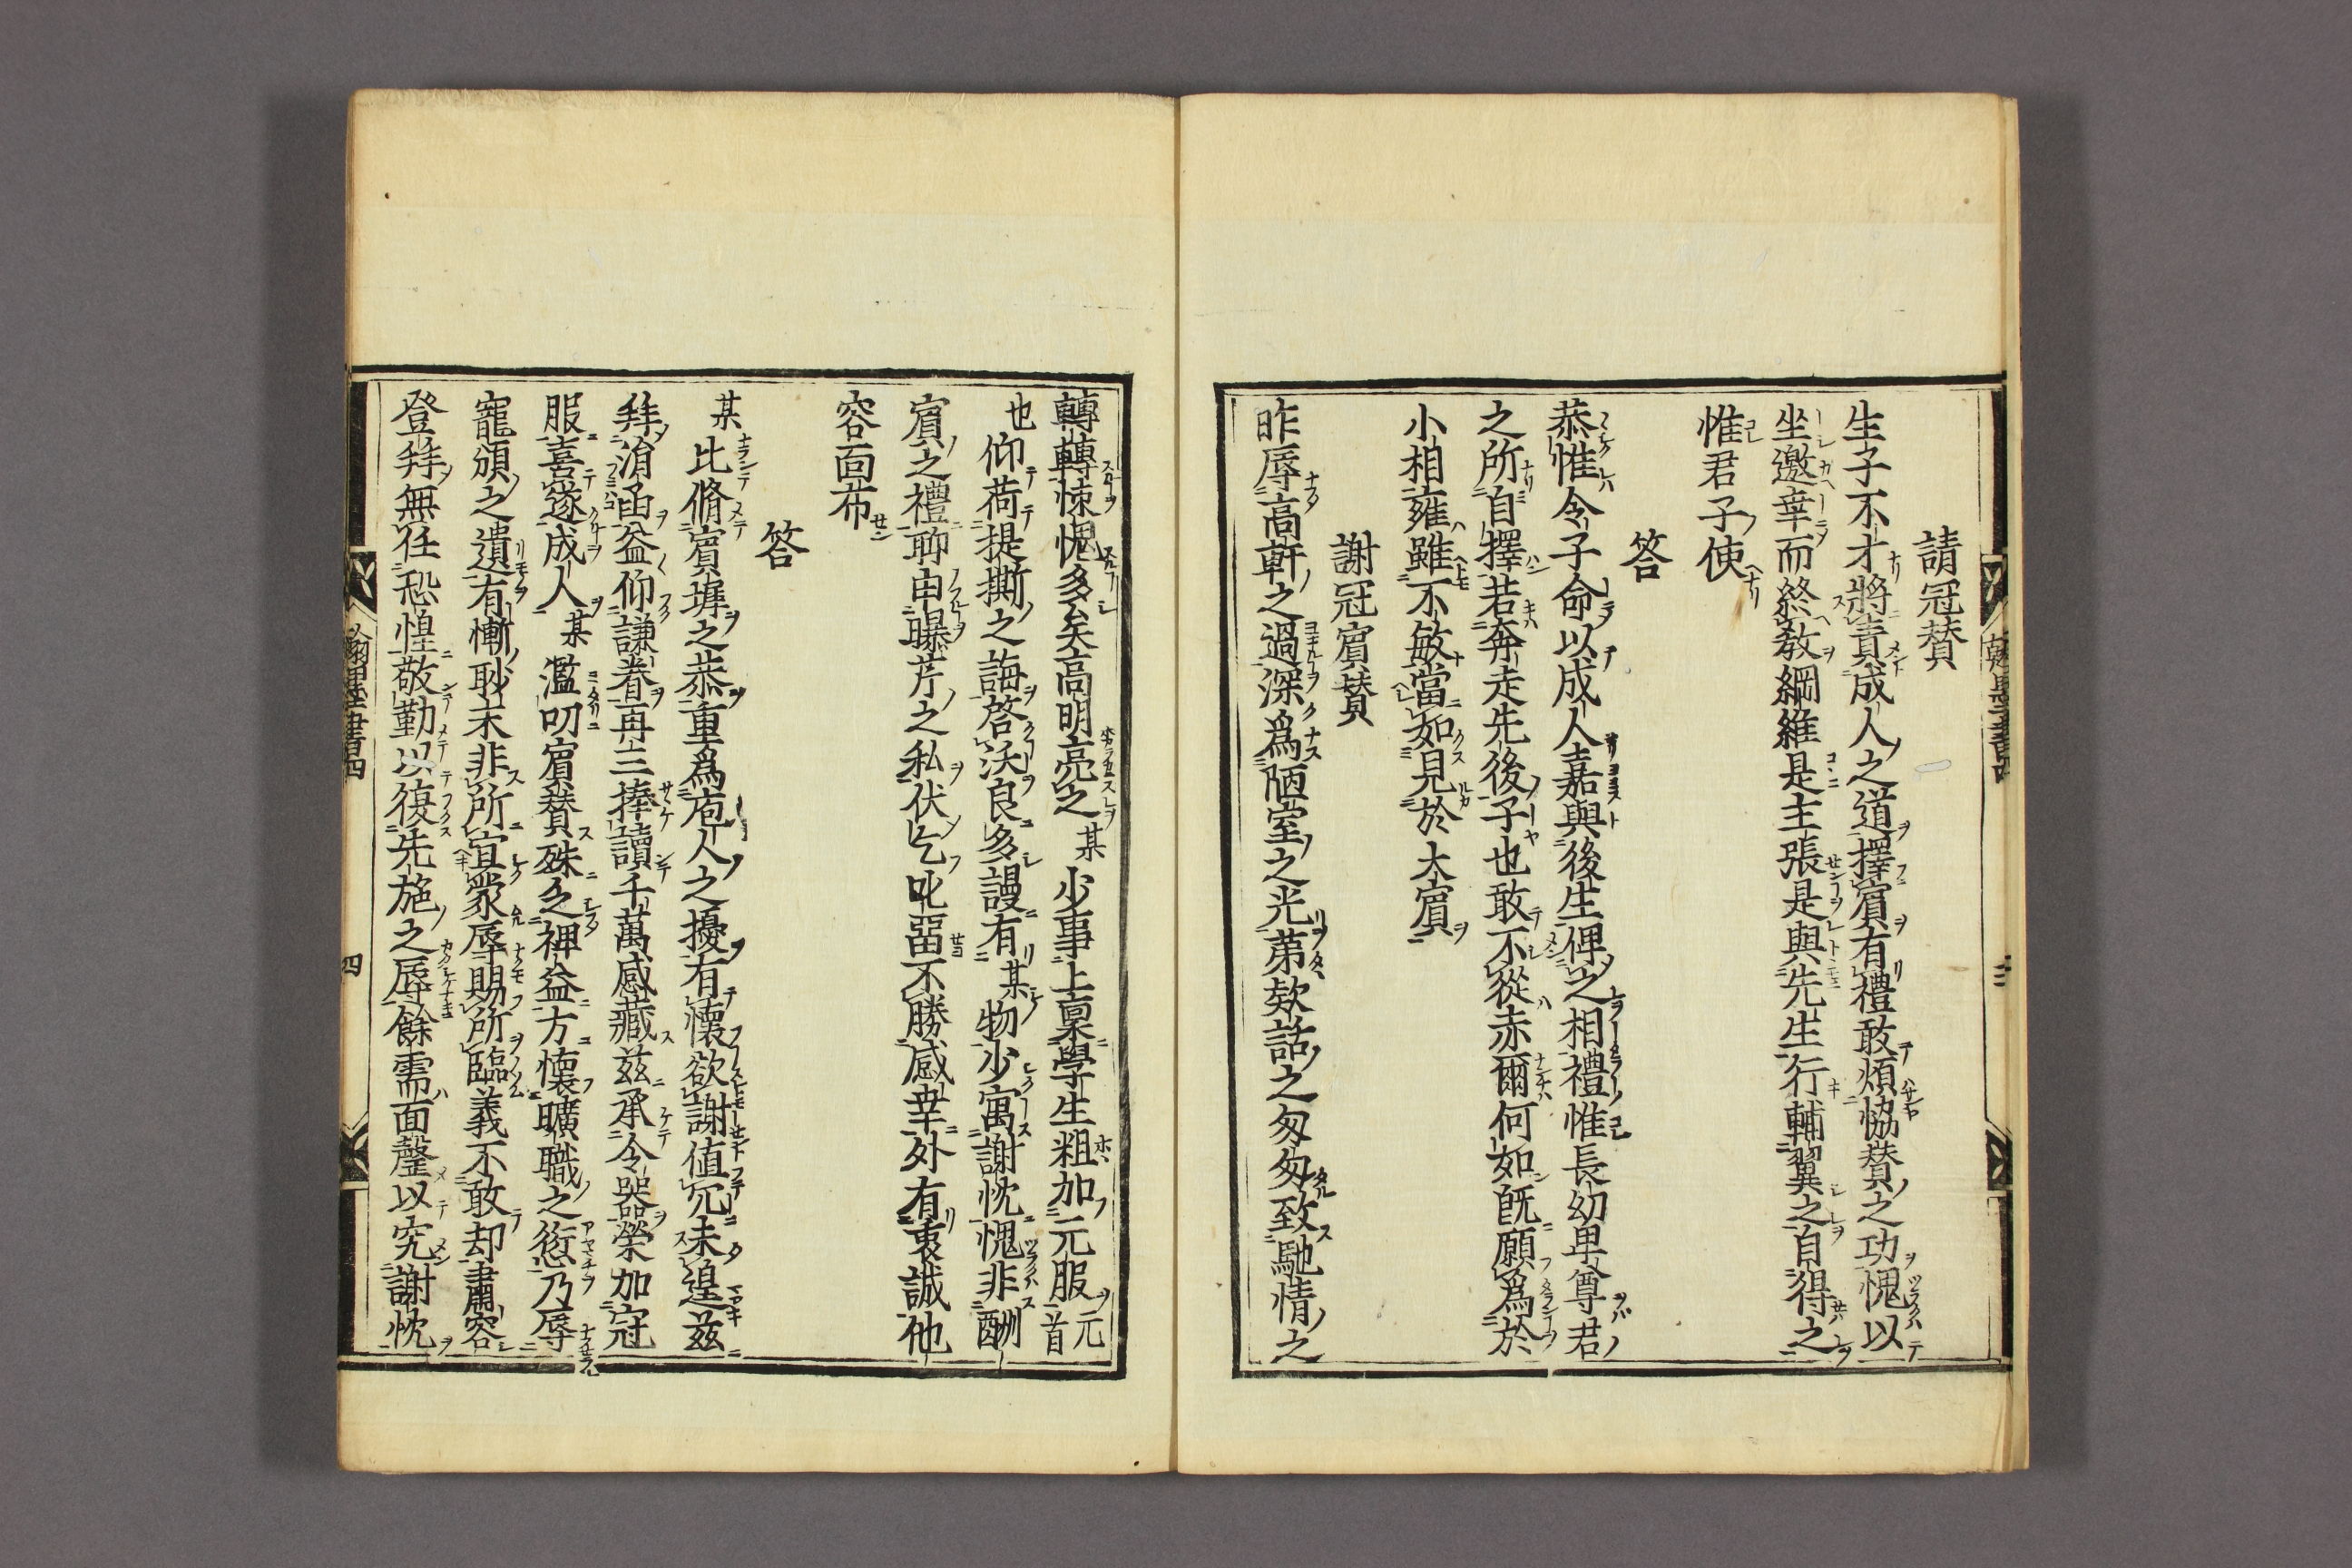 請冠賛
生子不才將責成人之道擇賔有禮敢煩恊賛之功愧以
坐邀幸而終教綱維是主張是與先生行輔翼之自得之
惟君子使
答
恭惟令子命以成人嘉與後生俾之相禮惟長幼卑尊君
之所自擇若奔走先後子也敢不從赤爾何如旣願爲於
小相雍雖不敏當如見於大賔
謝冠賔賛
昨辱高軒之過深爲陋室之光苐欵話之匆匆致馳情之
轉轉悚愧多矣高明亮之某少事上稟學生粗加元服元首
也仰荷提撕之誨啓沃良多謾有某物少寓謝忱愧非酬
賔之禮聊申曝芹之私伏乞叱畱不勝感幸外有衷誠他
容面布
答
某比脩賔墀之恭重爲庖人之擾有懷欲謝値冗未遑茲
拜㳙函益仰謙眷再三捧讀千萬感藏茲承令器榮加冠
服喜遂成人某濫叨賔賛殊乏裨益方懷曠職之愆乃辱
寵頒之遺有慚耿末非所宜䝉辱賜所臨義不敢却肅容
登拜無任恐惶敬勤以復先施之辱餘需面罄以究謝忱
翰墨書四
四